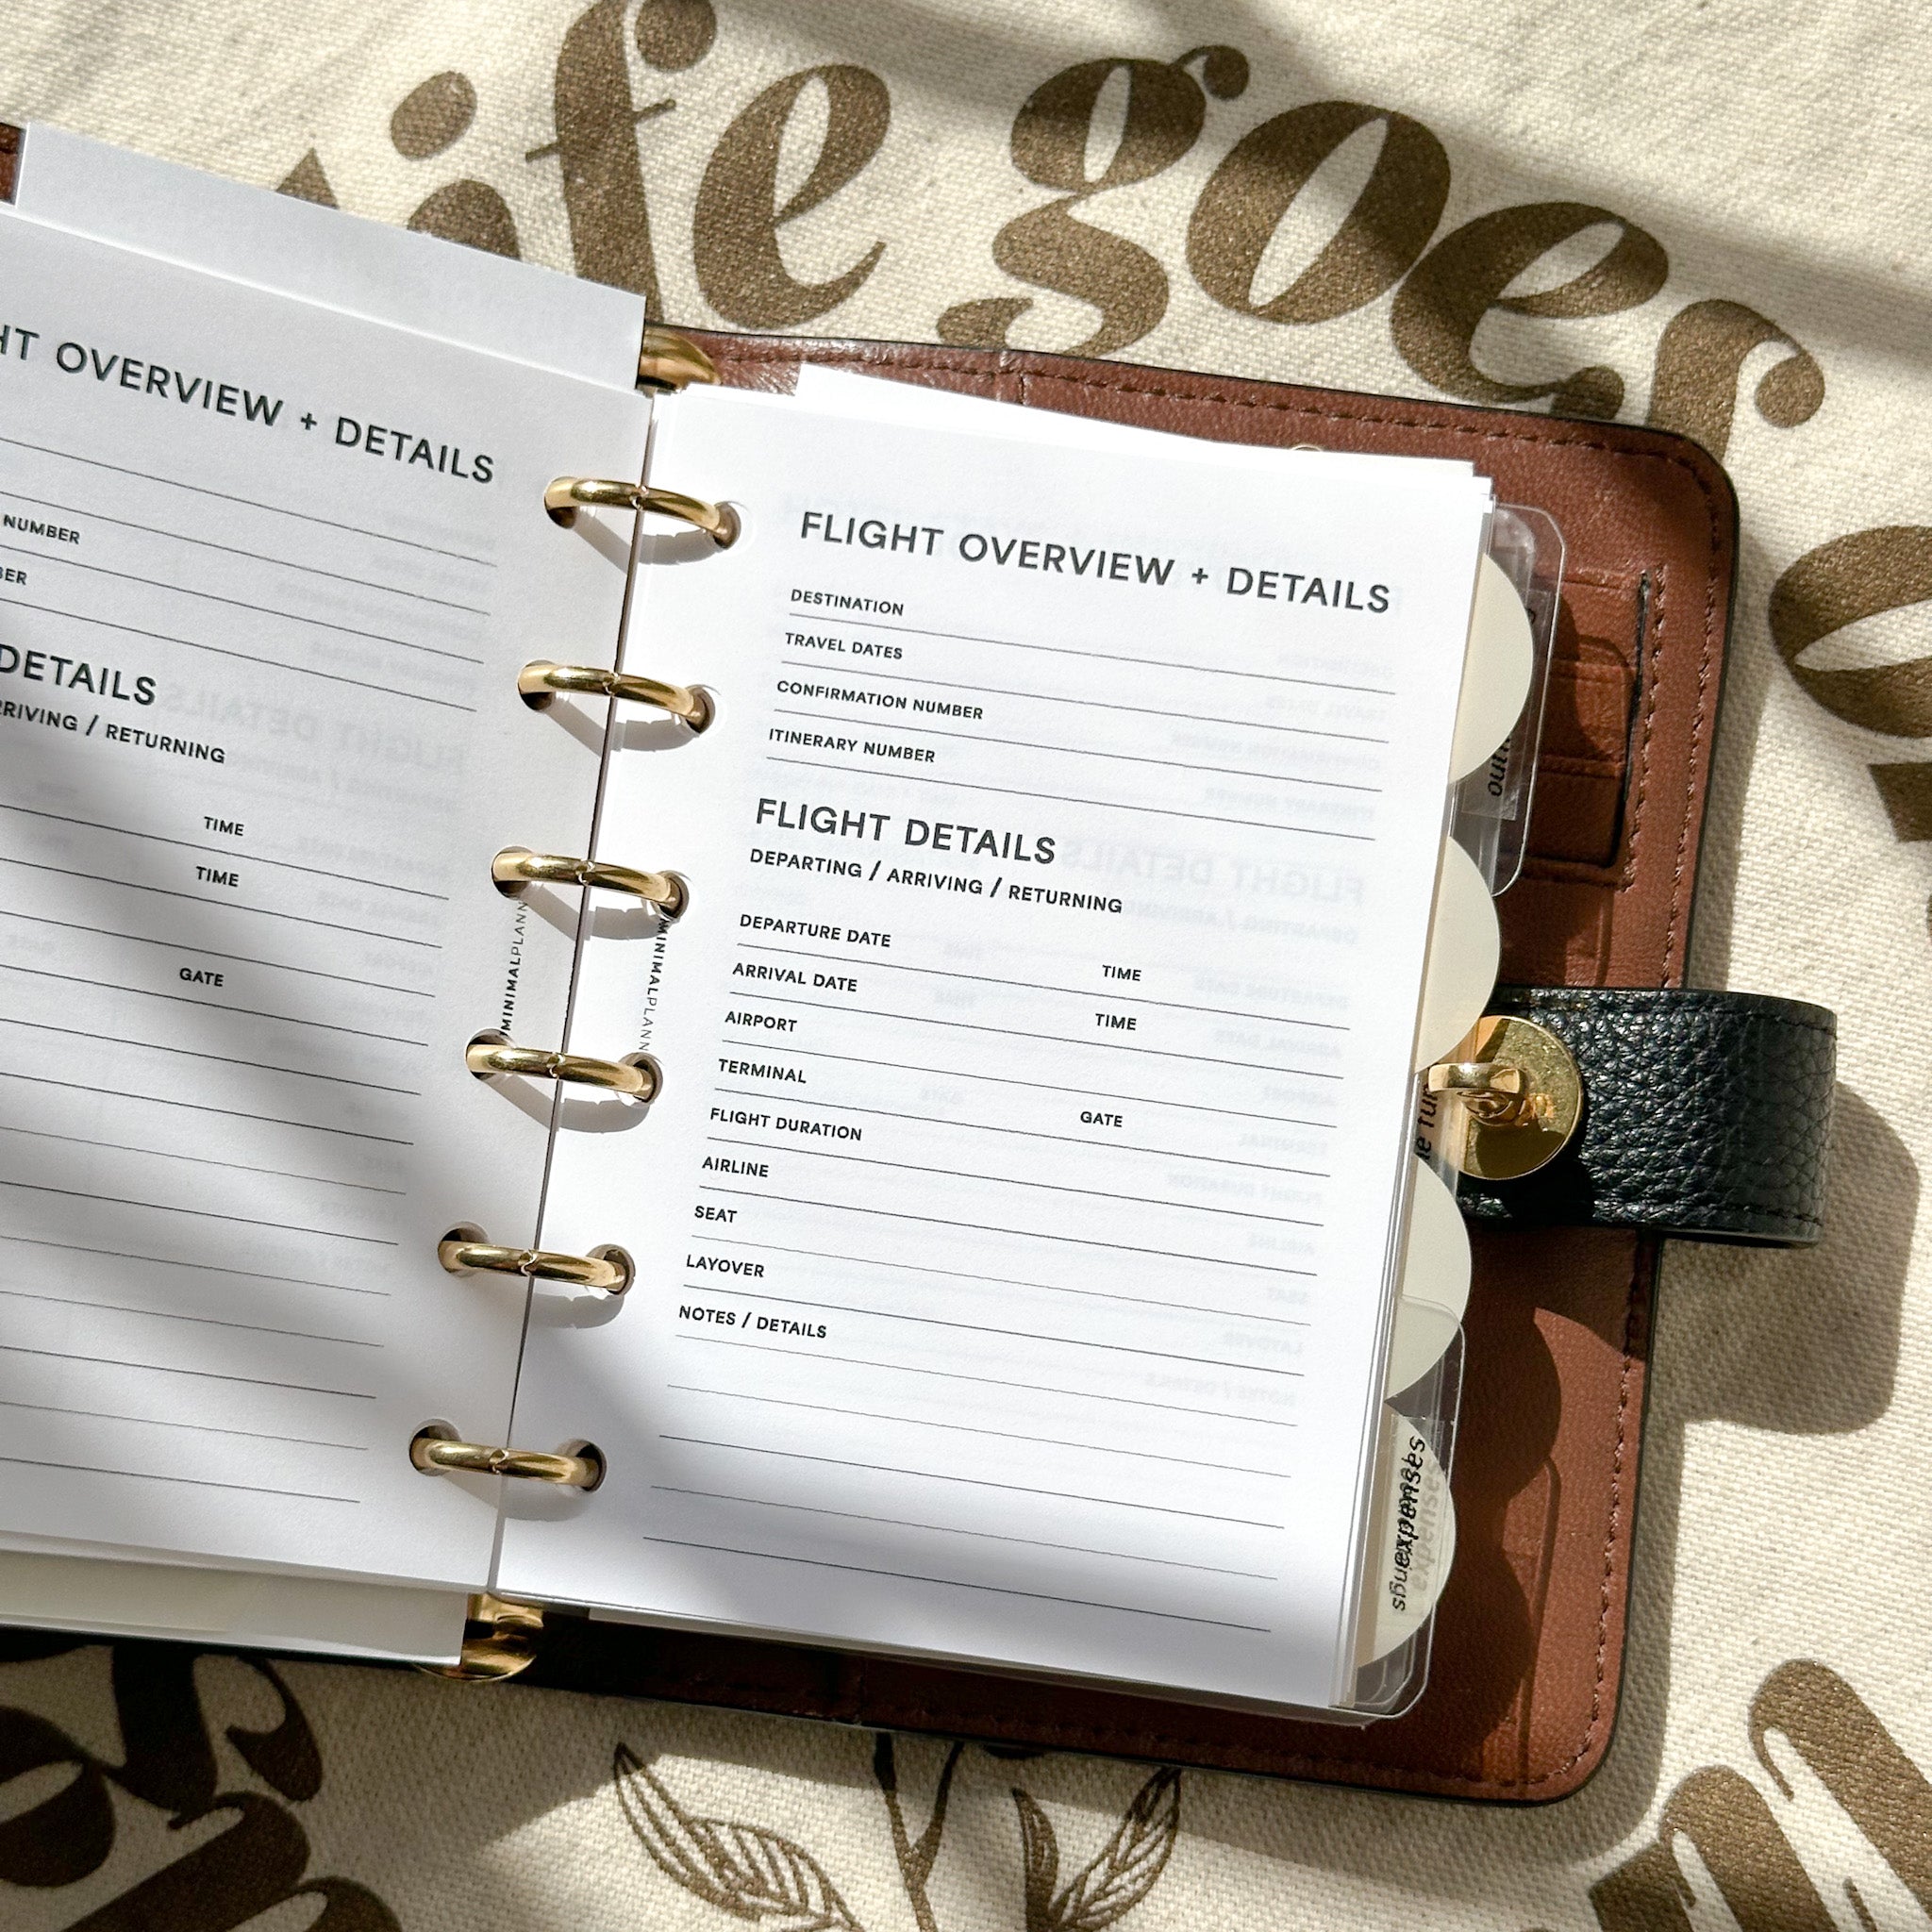 ife goes
OVERVIEW + DETAILS
NUMBER
DETAILS
/ RETURNING
TIME
TIME
GATE
MINIMALPLANN
MINIMALPLANN
FLIGHT OVERVIEW + DETAILS
DESTINATION
TRAVEL DATES
CONFIRMATION NUMBER
ITINERARY NUMBER
FLIGHT DETAILS
DEPARTING / ARRIVING / RETURNING
DEPARTURE DATE TIME
ARRIVAL DATE TIME
AIRPORT
TERMINAL GATE
FLIGHT DURATION
AIRLINE
SEAT
LAYOVER
NOTES / DETAILS